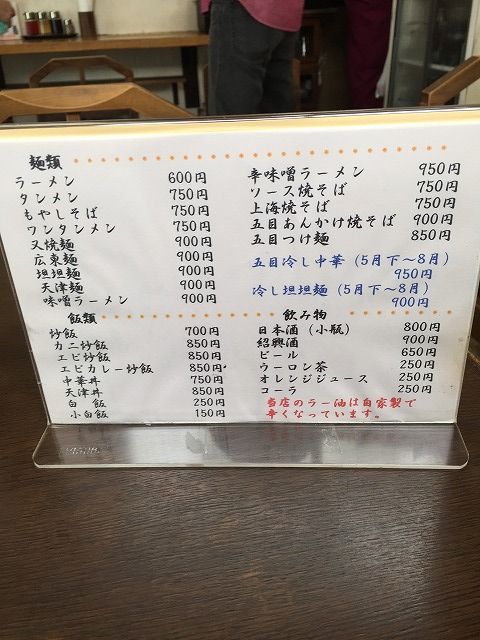 麺類
ラーメン 600円
タンメン 750円
もやしそば 750円
ワンタンメン 750円
叉焼麺 900円
広東麺 900円
坦坦麺 900円
天津麺 900円
味噌ラーメン 900円
辛味噌ラーメン 950円
ソース焼そば 750円
上海焼そば 750円
五目あんかけ焼そば 900円
五目つけ麺 850円
五目冷し中華（5月下～8月）
950円
冷し坦坦麺（5月下～8月）
900円
飯類
炒飯 700円
カニ炒飯 850円
エビ炒飯 850円
エビカレー炒飯 850円
中華丼 750円
天津丼 850円
白 飯 250円
小白飯 150円
飲み物
日本酒（小瓶） 800円
紹興酒 900円
ビール 650円
ウーロン茶 250円
オレンジジュース 250円
コーラ 250円
当店のラー油は自家製で
辛くなっています。